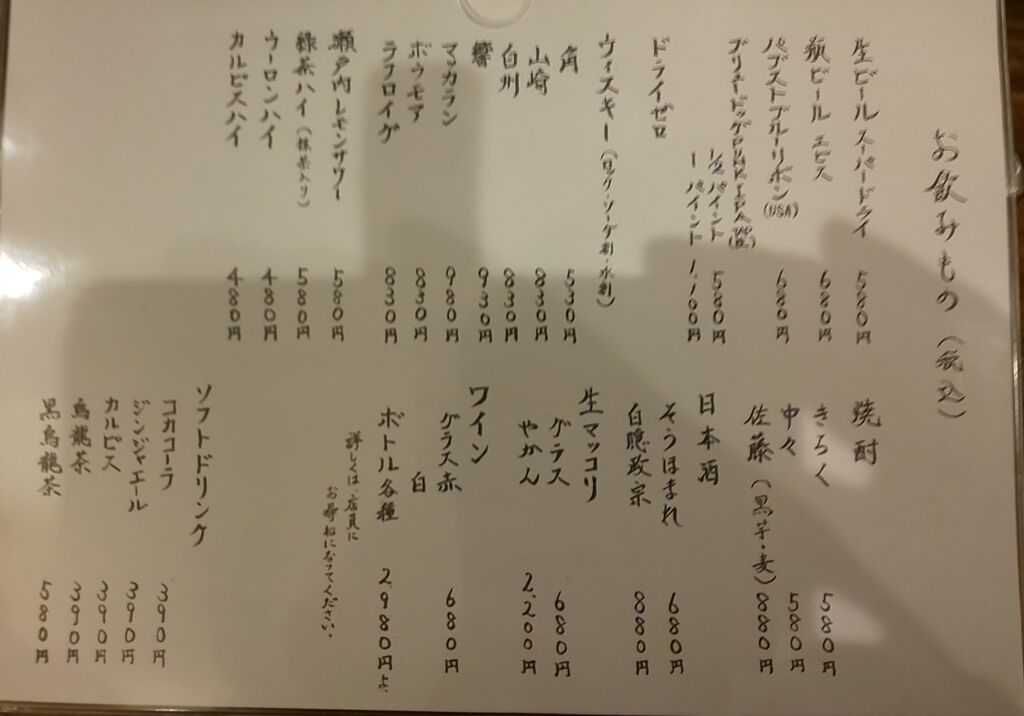 お飲みもの（税込）
生ビール スーパードライ 580円
瓶ビール エビス 680円
パブストブルーリボン(USA) 680円
ブリュードッグPUNK IPA
1/2パイント 580円
1 パイント 1,100円
ドライゼロ
ウィスキー（ロック・ソーダ割・水割）
角 530円
山崎 830円
白州 830円
響 930円
マッカラン 980円
ボウモア 830円
ラフロイグ 830円
瀬戸内レモンサワー 580円
緑茶ハイ（抹茶入り） 580円
ウーロンハイ 480円
カルピスハイ 480円
焼酎
きろく 580円
中々 580円
佐藤（黒芋・麦） 880円
日本酒
そうほまれ 680円
白隠政宗 880円
生マッコリ
グラス 680円
やかん 2,200円
ワイン
グラス赤 680円
白
ボトル各種 2,980円より
詳しくは、店員に
お尋ねになってください。
ソフトドリンク
コカコーラ 390円
ジンジャエール 390円
カルピス 390円
烏龍茶 390円
黒烏龍茶 580円